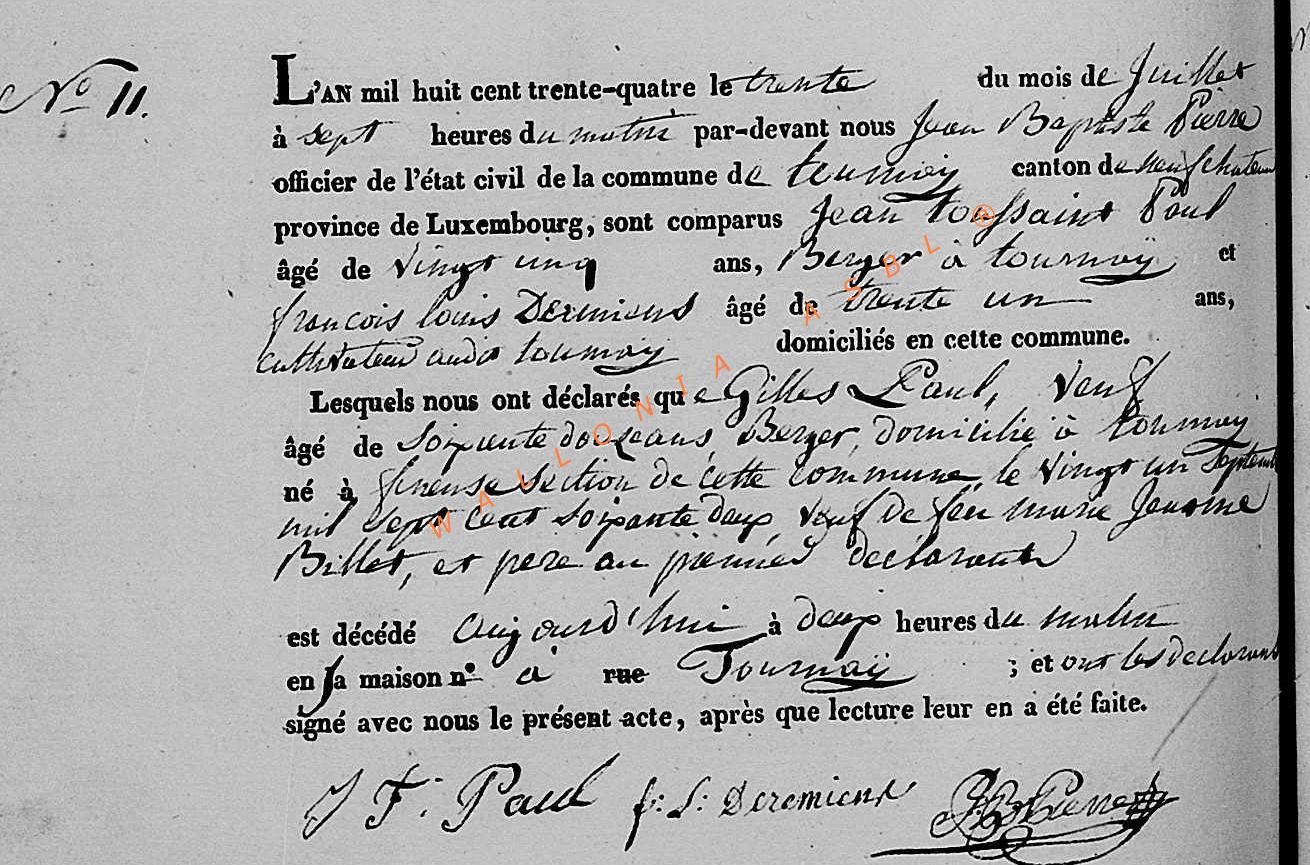 No 11.
L'AN mil huit cent trente-quatre le trente du mois de Juillet
à sept heures du matin par-devant nous Jean Baptiste Pierre
officier de l'état civil de la commune de tournay canton de neufchateau
province de Luxembourg, sont comparus Jean toussaint Paul
âgé de vingt cinq ans, Berger à tournaÿ et
françois louis Deremiens âgé de trente un ans,
cultivateur audit tournay domiciliés en cette commune.
Lesquels nous ont déclarés que Gilles Paul, veuf
âgé de soixante douze ans, Berger, domicilié à tournay
né à section de cette commune, le vingt un Septembre
mil sept cent soixante deux, veuf de feu marie Jeanne
Billet, et pere au premier declarant
est décédé aujourd'hui à deux heures du matin
en sa maison n° à rue Tournaÿ ; et ont les declarants
signé avec nous le présent acte, après que lecture leur en a été faite.
J F: Paul f: L: Deremiens JB Pierre
WALLONIA ASBL ®